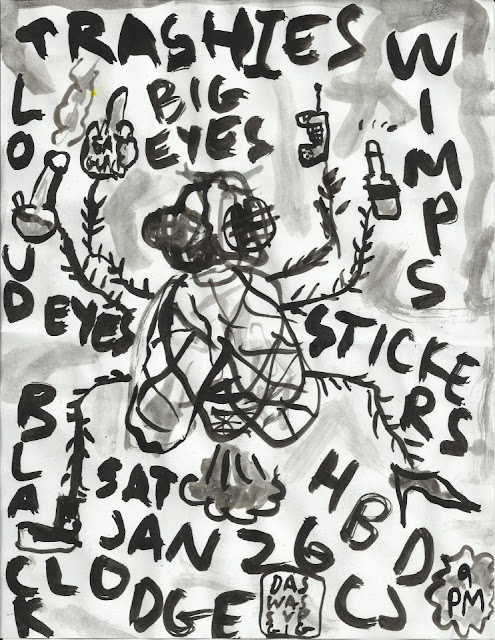 TRASHIES
WIMPS
BIG
EYES
LOUD EYES
STICKERS
SAT
JAN 26
HBD
CJ
BLACK LODGE
DAS
WAS
9
PM